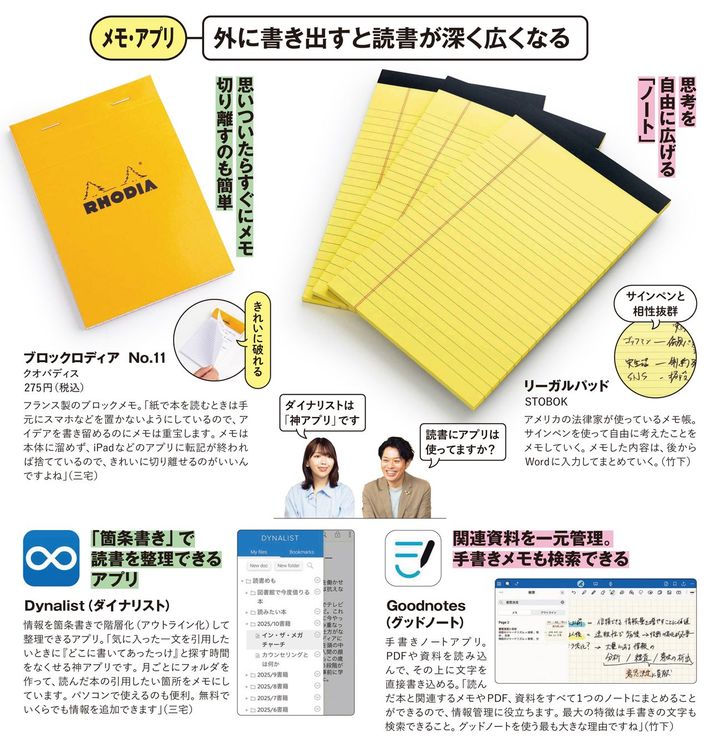 メモ・アプリ
外に書き出すと読書が深く広くなる
思いついたらすぐにメモ
切り離すのも簡単
思考を
自由に広げる
「ノート」
RHODIA
きれいに破れる
サインペンと
相性抜群
ブロックロディア No.11
クオバディス
275円（税込）
フランス製のブロックメモ。「紙で本を読むときは手
元にスマホなどを置かないようにしているので、ア
イデアを書き留めるのにメモは重宝します。メモは
本体に溜めず、iPadなどのアプリに転記が終われ
ば捨てているので、きれいに切り離せるのがいいん
ですよね」（三宅）
ダイナリストは
「神アプリ」です
読書にアプリは
使ってますか？
リーガルパッド
STOBOK
アメリカの法律家が使っているメモ帳。
サインペンを使って自由に考えたことを
メモしていく。メモした内容は、後から
Wordに入力してまとめていく。（竹下）
「箇条書き」で
読書を整理できる
アプリ
Dynalist（ダイナリスト）
情報を箇条書きで階層化（アウトライン化）して
整理できるアプリ。「気に入った一文を引用した
いときに『どこに書いてあったっけ』と探す時間
をなくせる神アプリです。月ごとにフォルダを
作って、読んだ本の引用したい箇所をメモにし
ています。パソコンで使えるのも便利。無料で
いくらでも情報を追加できます」（三宅）
DYNALIST
My files
Bookmarks
New doc
New folder
読書めも
図書館で今度借りる
本
読みたい本
2025/10書籍
イン・ザ・メガ
チャーチ
カウンセリングと
は何か
2025/9書籍
2025/8書籍
2025/7書籍
2025/6書籍
関連資料を一元管理。
手書きメモも検索できる
Goodnotes
（グッドノート）
手書きノートアプリ。
PDFや資料を読み込
んで、その上に文字を
直接書き込める。「読ん
だ本と関連するメモやPDF、資料をすべて1つのノートにまとめること
ができるので、情報管理に役立ちます。最大の特徴は手書きの文字も
検索できること。グッドノートを使う最も大きな理由ですね」（竹下）